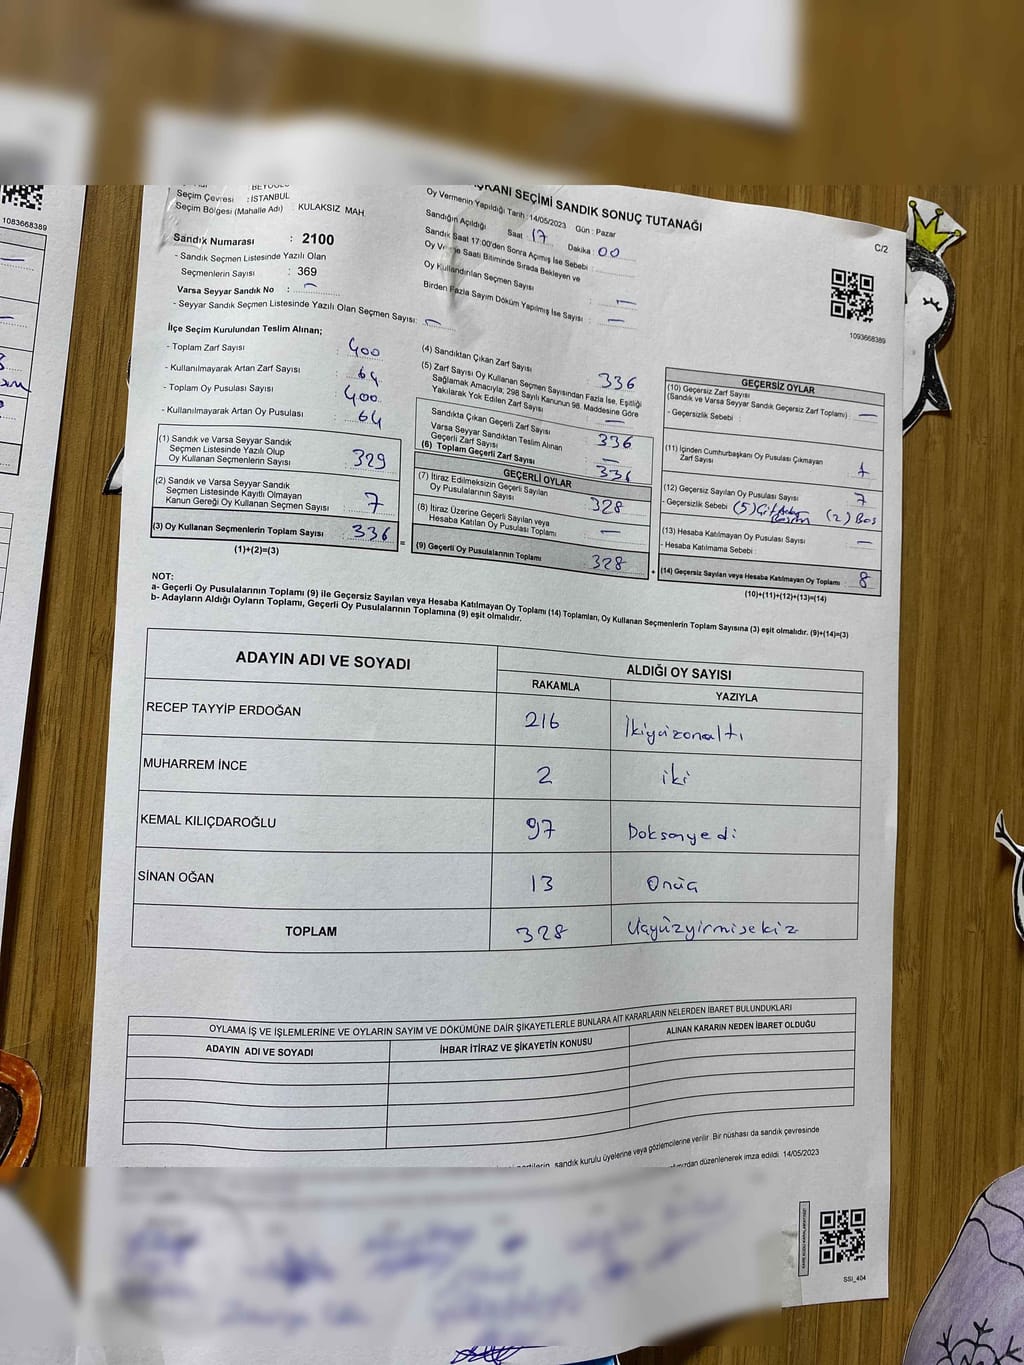 1083668389
ŞKANI SEÇİMİ SANDIK SONUÇ TUTANAĞI
C/2
1093668389
BEYOĞLU
Seçim Çevresi : İSTANBUL
Seçim Bölgesi (Mahalle Adı) : KULAKSIZ MAH.
Sandık Numarası : 2100
- Sandık Seçmen Listesinde Yazılı Olan
Seçmenlerin Sayısı : 369
Varsa Seyyar Sandık No : —
- Seyyar Sandık Seçmen Listesinde Yazılı Olan Seçmen Sayısı: —
Oy Vermenin Yapıldığı Tarih : 14/05/2023 Gün : Pazar
Sandığın Açıldığı Saat 17 Dakika 00
Sandık Saat 17:00'den Sonra Açılmış İse Sebebi :
Oy Verme Saati Bitiminde Sırada Bekleyen ve
Oy Kullandırılan Seçmen Sayısı : —
Birden Fazla Sayım Döküm Yapılmış İse Sayısı : —
İlçe Seçim Kurulundan Teslim Alınan;
- Toplam Zarf Sayısı : 400
- Kullanılmayarak Artan Zarf Sayısı : 64
- Toplam Oy Pusulası Sayısı : 400
- Kullanılmayarak Artan Oy Pusulası : 64
(1) Sandık ve Varsa Seyyar Sandık
Seçmen Listesinde Yazılı Olup
Oy Kullanan Seçmenlerin Sayısı : 329
(2) Sandık ve Varsa Seyyar Sandık
Seçmen Listesinde Kayıtlı Olmayan
Kanun Gereği Oy Kullanan Seçmen Sayısı : 7
(3) Oy Kullanan Seçmenlerin Toplam Sayısı : 336
(1)+(2)=(3)
(4) Sandıktan Çıkan Zarf Sayısı : 336
(5) Zarf Sayısı Oy Kullanan Seçmen Sayısından Fazla İse, Eşitliği
Sağlamak Amacıyla; 298 Sayılı Kanunun 98. Maddesine Göre
Yakılarak Yok Edilen Zarf Sayısı : —
Sandıkta Çıkan Geçerli Zarf Sayısı : 336
Varsa Seyyar Sandıktan Teslim Alınan
Geçerli Zarf Sayısı : —
(6) Toplam Geçerli Zarf Sayısı : 336
GEÇERLİ OYLAR
(7) İtiraz Edilmeksizin Geçerli Sayılan
Oy Pusulalarının Sayısı : 328
(8) İtiraz Üzerine Geçerli Sayılan veya
Hesaba Katılan Oy Pusulası Toplamı : —
(9) Geçerli Oy Pusulalarının Toplamı : 328
GEÇERSİZ OYLAR
(10) Geçersiz Zarf Sayısı
(Sandık ve Varsa Seyyar Sandık Geçersiz Zarf Toplamı) : —
- Geçersizlik Sebebi :
(11) İçinden Cumhurbaşkanı Oy Pusulası Çıkmayan
Zarf Sayısı : 1
(12) Geçersiz Sayılan Oy Pusulası Sayısı : 7
- Geçersizlik Sebebi (5) (2) Boş
(13) Hesaba Katılmayan Oy Pusulası Sayısı : —
- Hesaba Katılmama Sebebi :
(14) Geçersiz Sayılan veya Hesaba Katılmayan Oy Toplamı : 8
(10)+(11)+(12)+(13)=(14)
NOT:
a- Geçerli Oy Pusulalarının Toplamı (9) ile Geçersiz Sayılan veya Hesaba Katılmayan Oy Toplamı (14) Toplamları, Oy Kullanan Seçmenlerin Toplam Sayısına (3) eşit olmalıdır. (9)+(14)=(3)
b- Adayların Aldığı Oyların Toplamı, Geçerli Oy Pusulalarının Toplamına (9) eşit olmalıdır.
ADAYIN ADI VE SOYADI ALDIĞI OY SAYISI
RAKAMLA YAZIYLA
RECEP TAYYİP ERDOĞAN 216 İkiyüzonaltı
MUHARREM İNCE 2 iki
KEMAL KILIÇDAROĞLU 97 Doksanyedi
SİNAN OĞAN 13 Onüç
TOPLAM 328 Üçyüzyirmisekiz
OYLAMA İŞ VE İŞLEMLERİNE VE OYLARIN SAYIM VE DÖKÜMÜNE DAİR ŞİKAYETLERLE BUNLARA AİT KARARLARIN NELERDEN İBARET BULUNDUKLARI
ADAYIN ADI VE SOYADI İHBAR İTİRAZ VE ŞİKAYETİN KONUSU ALINAN KARARIN NEDEN İBARET OLDUĞU
sandık kurulu üyelerine veya gözlemcilerine verilir. Bir nüshası da sandık çevresinde
düzenlenerek imza edildi. 14/05/2023
SSI_404